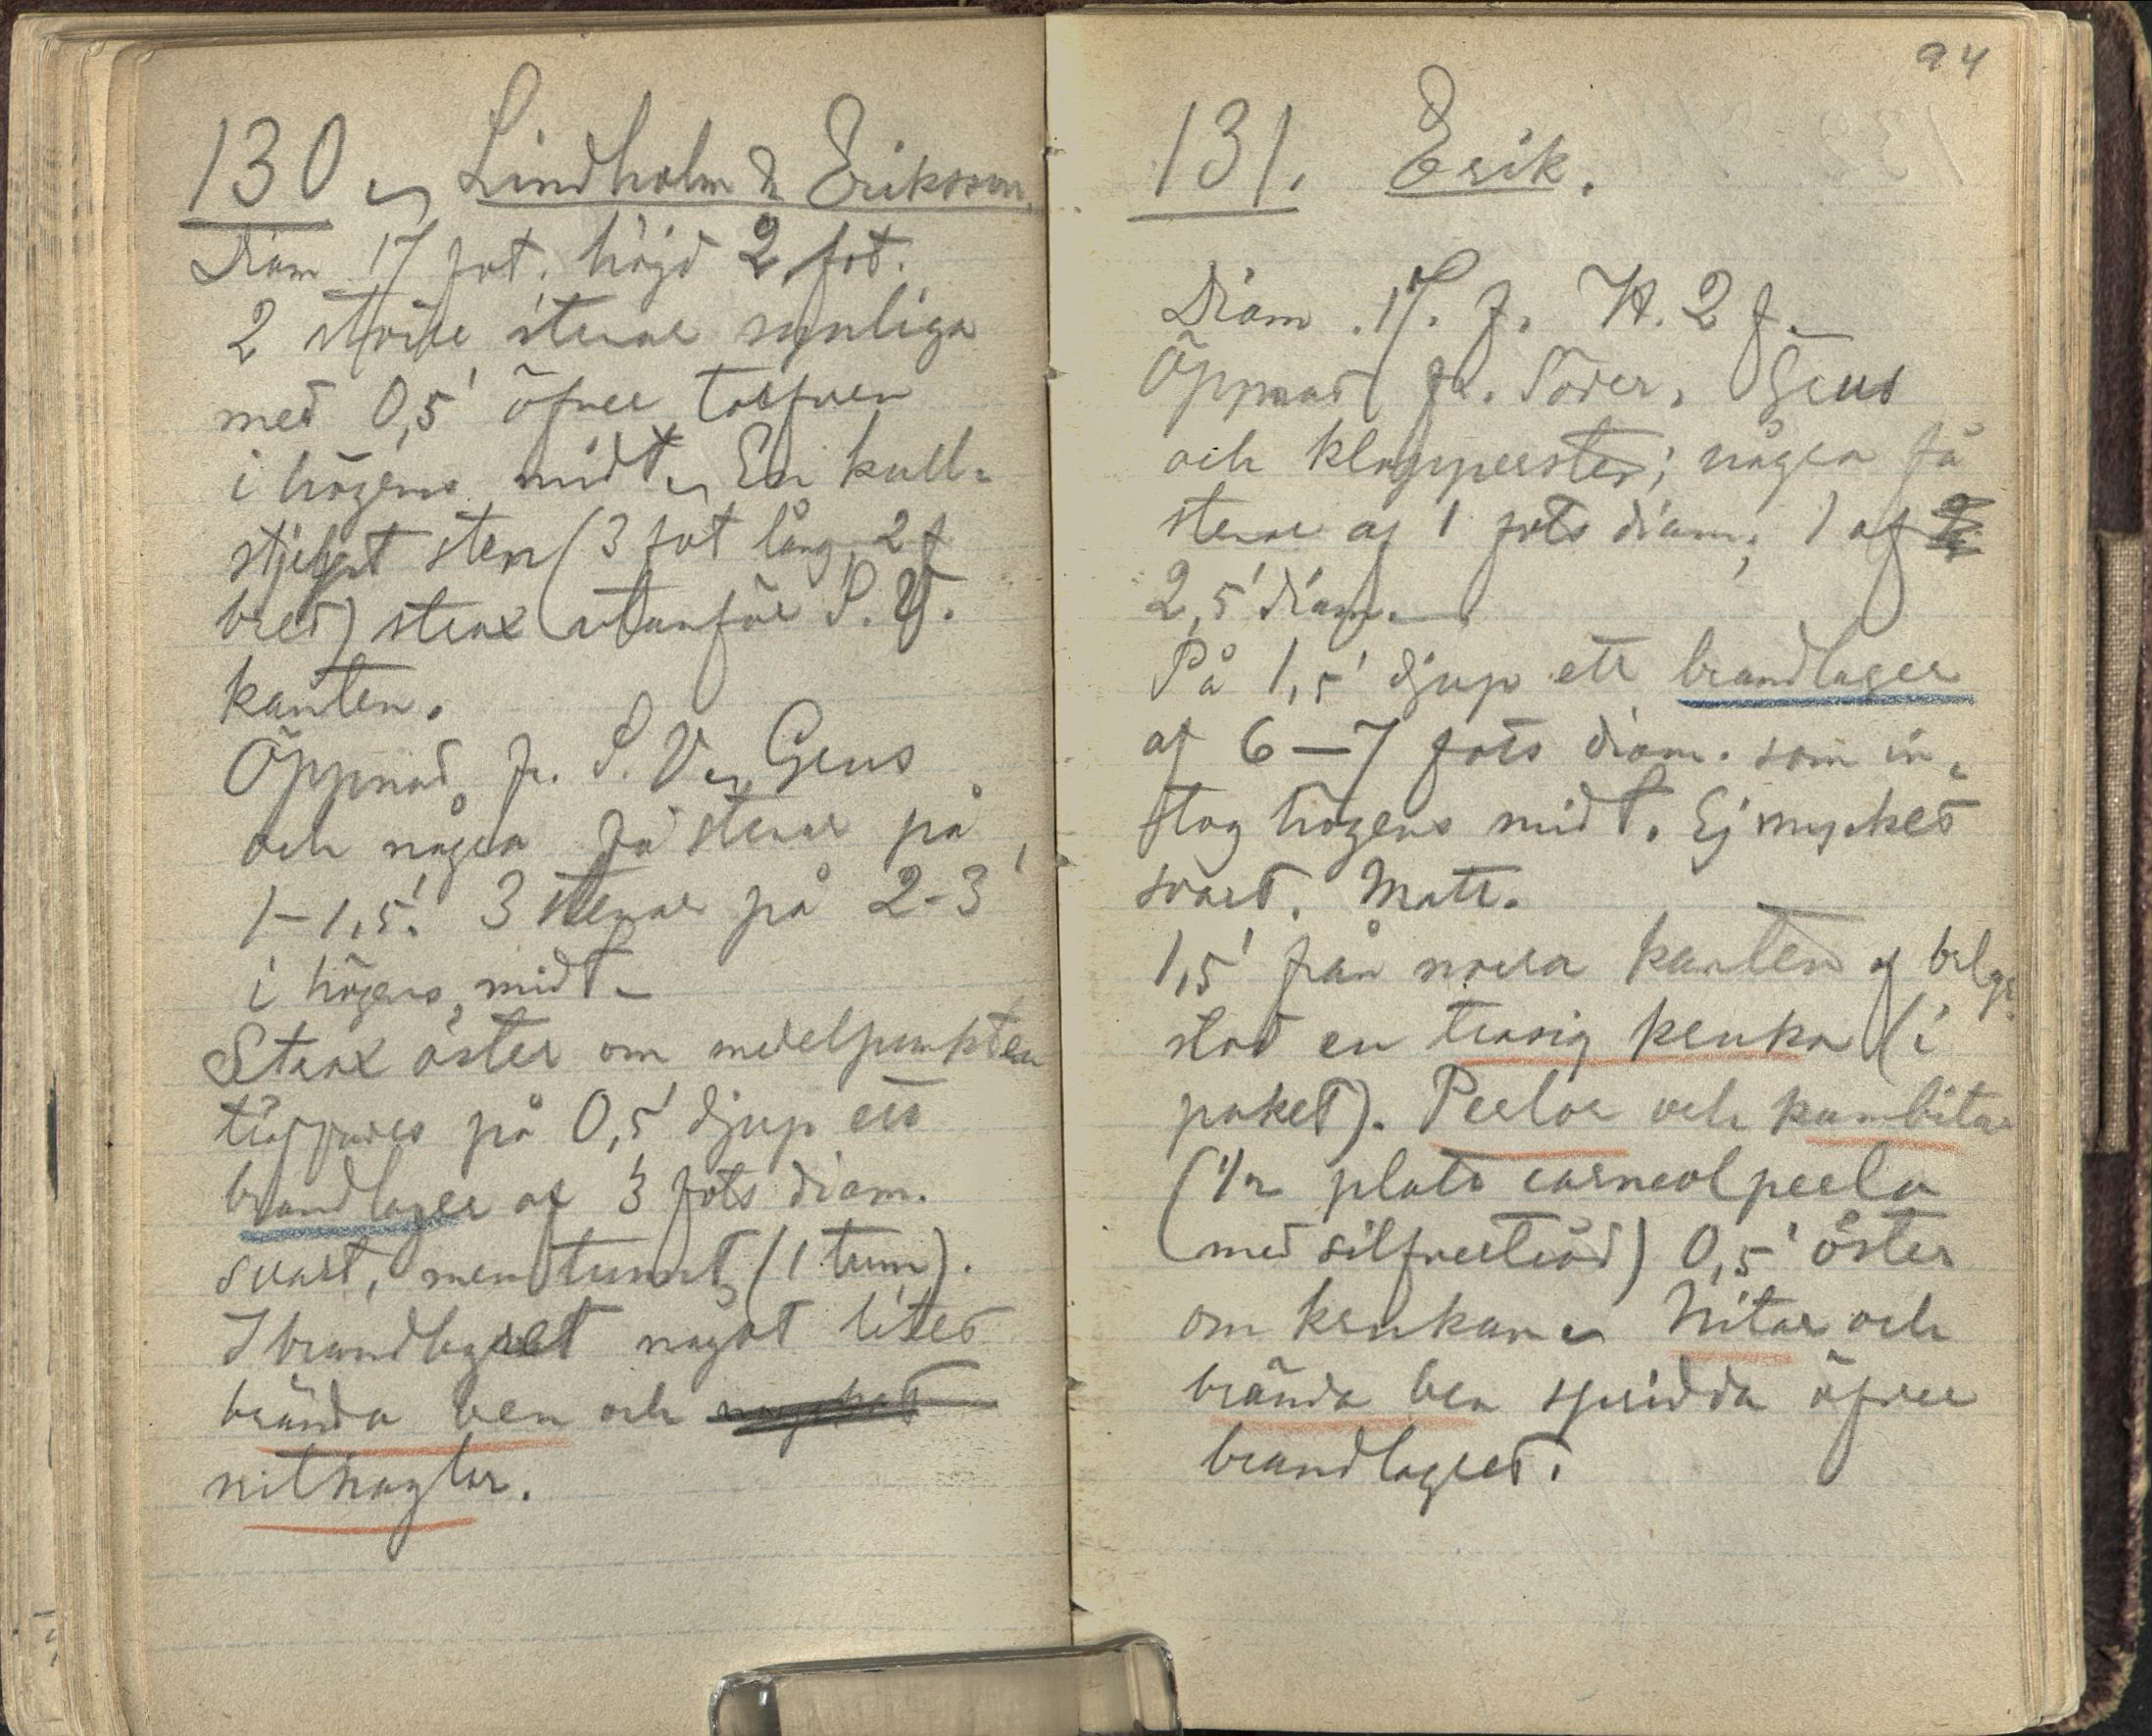 130 ~ Lindholm & Eriksson.
Diam 17 fot. höjd 2 fot.
2 större stenar synliga
med 0,5' öfver torfven
i högens midt ~ En kull-
stjelpt sten (3 fot lång, 2 f
bred) strax utanför S. V.
kanten.
Öppnad fr. S. V ~ Grus
och några få stenar på
1–1,5'. 3 stenar på 2-3'
i högens midt –
Strax öster om medelpunkten
träffades på 0,5' djup ett
brandlager af 3 fots diam.
svart, men tunnt (1 tum).
I brandlagret något litet
brända ben och mycket
nithaglar.
94
131. Erik.
Diam. 17. f. H. 2 f. –
Öppnad fr. Söder, Grus
och klappersten; några få
stenar af 1 fots diam; 1 af
2,5' diam. –
På 1,5' djup ett brandlager
af 6–7 fots diam. som in-
tog högens midt. Ej mycket
svart. Matt.
1,5' från norra kanten af brlgr
stod en trasig kruka (i
paket). Perlor och kambitar
(1/2 platt carneolperla
med silfvertråd) 0,5' öster
om krukan ~ Nitar och
brända ben spridda öfver
brandlagret.